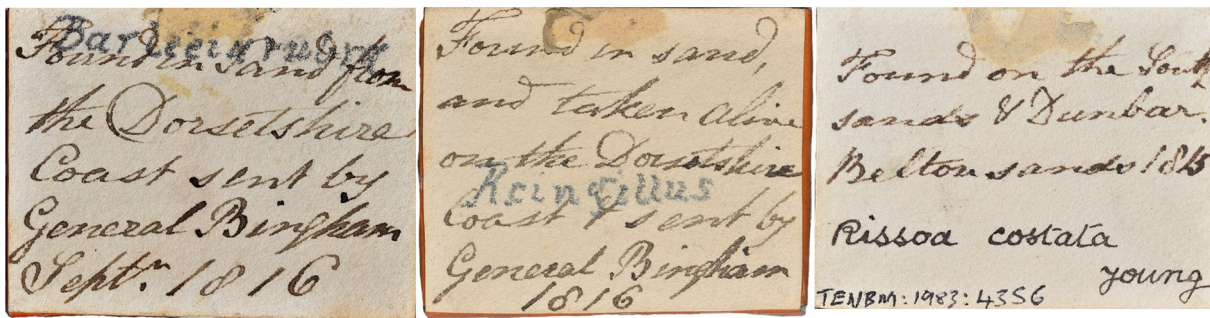 Bartleeia rubra
Found in sand from
the Dorsetshire
Coast sent by
General Bingham
Septr. 1816
Found in sand,
and taken alive
on the Dorsetshire
Cingillus
Coast & sent by
General Bingham
1816
Found on the South
sands & Dunbar.
Belton sands 1815
Rissoa costata
young
TENBM:1983:4356